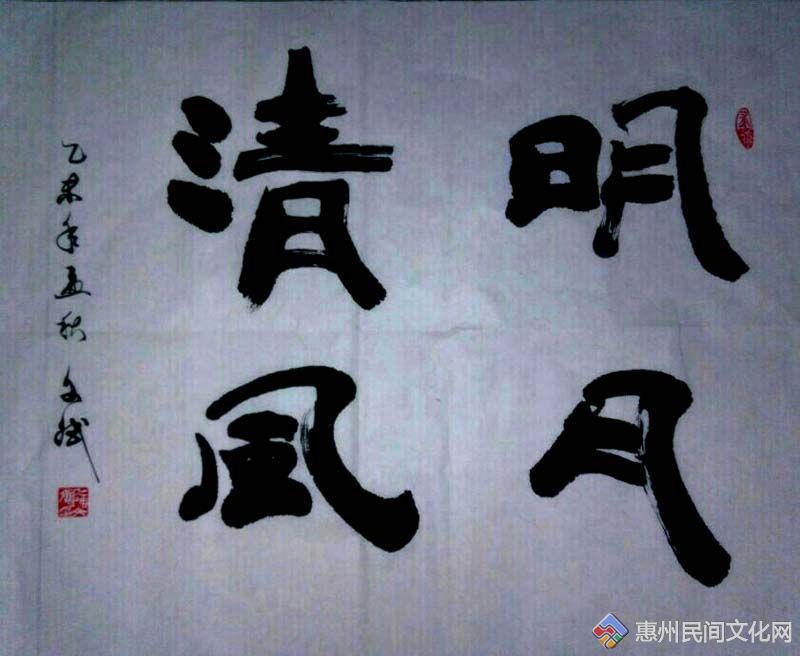 明月
清风
乙未年孟秋 文斌
惠州民间文化网